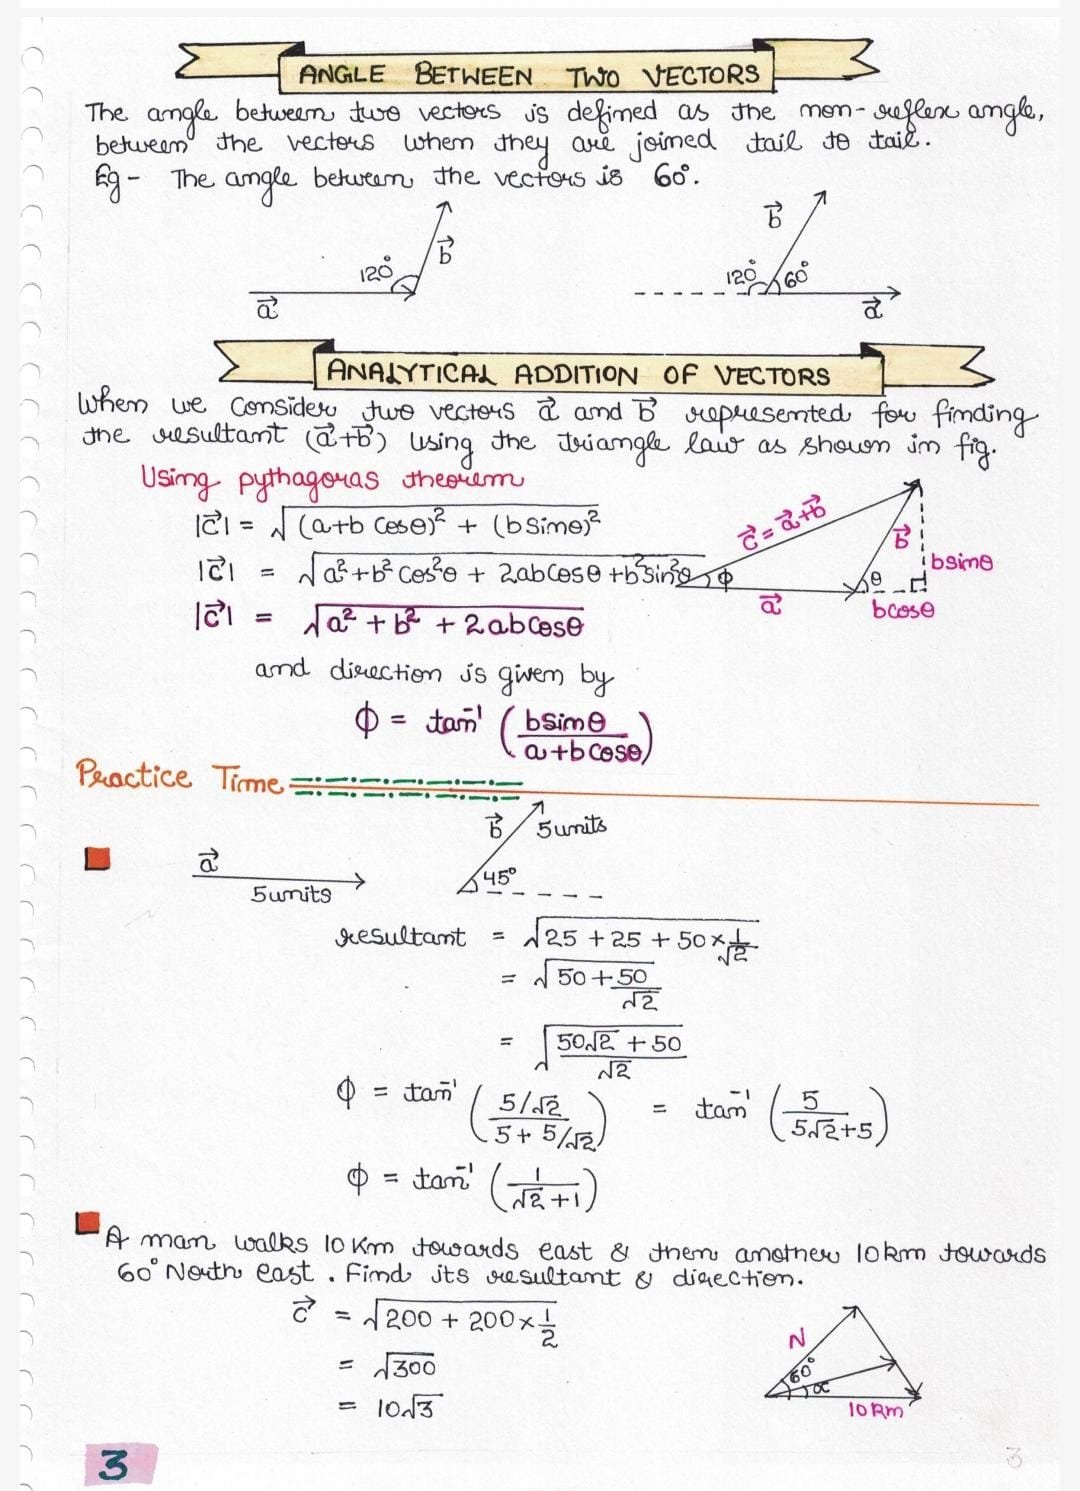 ANGLE BETWEEN TWO VECTORS
The angle between two vectors is defined as the non-reflex angle,
between the vectors when they are joined tail to tail.
Eg - The angle between the vectors is 60°.
120° b⃗ a⃗
b⃗ 120° 60° a⃗
ANALYTICAL ADDITION OF VECTORS
When we consider two vectors a⃗ and b⃗ represented for finding
the resultant (a⃗+b⃗) using the triangle law as shown in fig.
Using pythagoras theorem
|c⃗| = √(a+b cosθ)² + (b sinθ)²
|c⃗| = √a²+b² cos²θ + 2ab cosθ + b² sin²θ
|c⃗| = √a² + b² + 2ab cosθ
c⃗ = a⃗+b⃗ b⃗ b sinθ
ϕ a⃗ θ b cosθ
and direction is given by
ϕ = tan⁻¹ (b sinθ / a + b cosθ)
Practice Time
a⃗ 5 units
b⃗ 5 units 45°
resultant = √25 + 25 + 50 × 1/√2
= √50 + 50/√2
= √(50√2 + 50)/√2
ϕ = tan⁻¹ (5/√2 / 5 + 5/√2) = tan⁻¹ (5 / 5√2+5)
ϕ = tan⁻¹ (1 / √2 + 1)
A man walks 10 Km towards east & then another 10 km towards
60° North east . Find its resultant & direction.
c⃗ = √200 + 200 × 1/2
= √300
= 10√3
N 60° α 10 Km
3
3